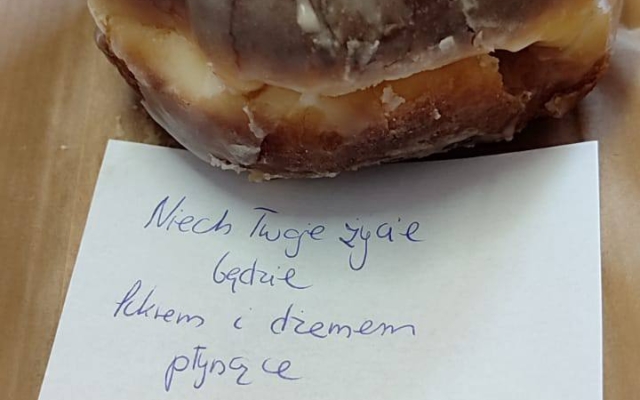 Niech Twoje życie
będzie
lukrem i dżemem
płynące